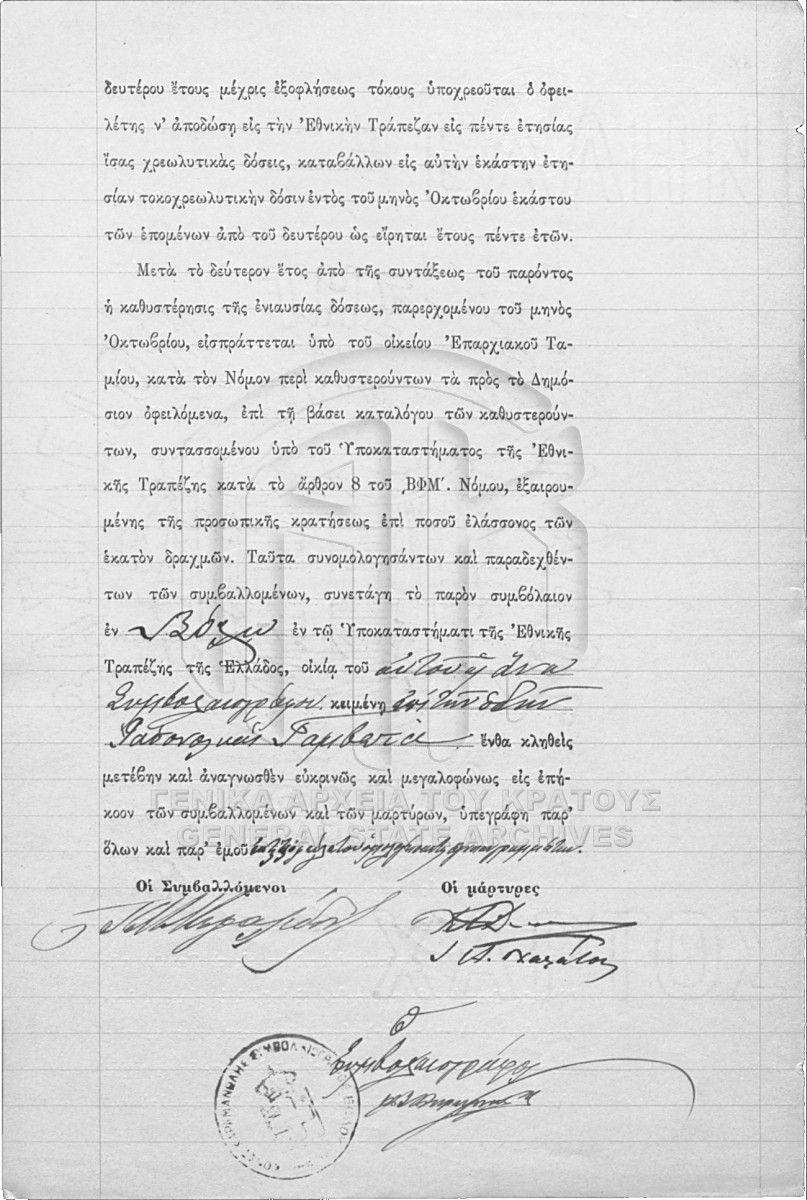 δευτέρου ἔτους μέχρις ἐξοφλήσεως τόκους ὑποχρεοῦται ὁ ὀφει-
λέτης ν' ἀποδώσῃ εἰς τὴν Ἐθνικὴν Τράπεζαν εἰς πέντε ἐτησίας
ἴσας χρεωλυτικὰς δόσεις, καταβάλλων εἰς αὐτὴν ἑκάστην ἐτη-
σίαν τοκοχρεωλυτικὴν δόσιν ἐντὸς τοῦ μηνὸς Ὀκτωβρίου ἑκάστου
τῶν ἑπομένων ἀπὸ τοῦ δευτέρου ὡς εἴρηται ἔτους πέντε ἐτῶν.
Μετὰ τὸ δεύτερον ἔτος ἀπὸ τῆς συντάξεως τοῦ παρόντος
ἡ καθυστέρησις τῆς ἐνιαυσίας δόσεως, παρερχομένου τοῦ μηνὸς
Ὀκτωβρίου, εἰσπράττεται ὑπὸ τοῦ οἰκείου Ἐπαρχιακοῦ Τα-
μίου, κατὰ τὸν Νόμον περὶ καθυστερούντων τὰ πρὸς τὸ Δημό-
σιον ὀφειλόμενα, ἐπὶ τῇ βάσει καταλόγου τῶν καθυστερούν-
των, συντασσομένου ὑπὸ τοῦ Ὑποκαταστήματος τῆς Ἐθνι-
κῆς Τραπέζης κατὰ τὸ ἄρθρον 8 τοῦ ͵ΒΦΜ΄. Νόμου, ἐξαιρου-
μένης τῆς προσωπικῆς κρατήσεως ἐπὶ ποσοῦ ἐλάσσονος τῶν
ἑκατὸν δραχμῶν. Ταῦτα συνομολογησάντων καὶ παραδεχθέν-
των τῶν συμβαλλομένων, συνετάγη τὸ παρὸν συμβόλαιον
ἐν Βόλῳ ἐν τῷ Ὑποκαταστήματι τῆς Ἐθνικῆς
Τραπέζης τῆς Ἑλλάδος, οἰκίᾳ τοῦ
Συμβολαιογράφου κειμένῃ ἐπὶ τὴν ὁδὸν
ἔνθα κληθεὶς
μετέβην καὶ ἀναγνωσθὲν εὐκρινῶς καὶ μεγαλοφώνως εἰς ἐπή-
κοον τῶν συμβαλλομένων καὶ τῶν μαρτύρων, ὑπεγράφη παρ'
ὅλων καὶ παρ' ἐμοῦ
Οἱ Συμβαλλόμενοι Οἱ μάρτυρες
Ὁ
Συμβολαιογράφος
ΓΕΝΙΚΑ ΑΡΧΕΙΑ ΤΟΥ ΚΡΑΤΟΥΣ
GENERAL STATE ARCHIVES